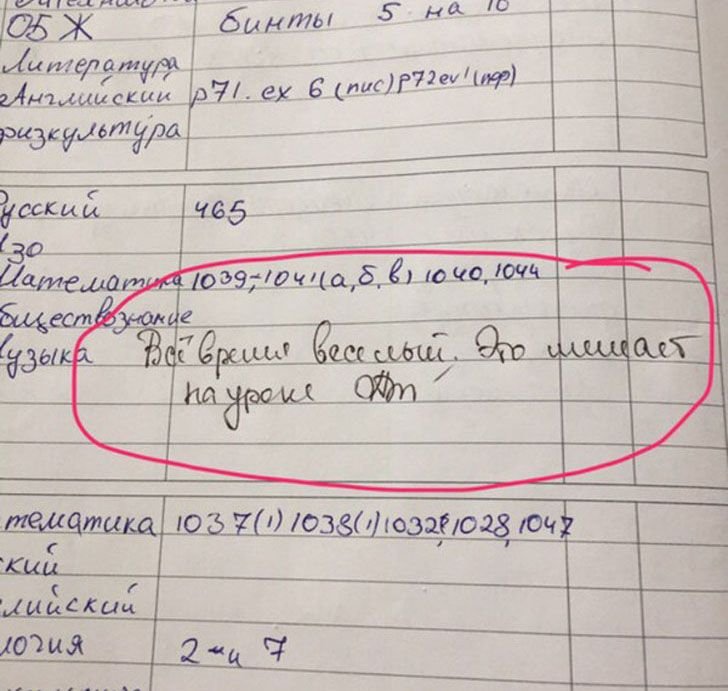 ОБЖ бинты 5 на 10
Литература
Английский p71. ex 6 (пис) p72 ex 1 (пер)
физкультура
Русский 465
ИЗО
Математика 1039, 1041(а, б, в) 1040, 1044
бществознание
узыка Всё время веселый. Это мешает
на уроке
тематика 1037(1) 1038(1) 1032, 1028, 1047
ский
лийский
логия 2-и 7